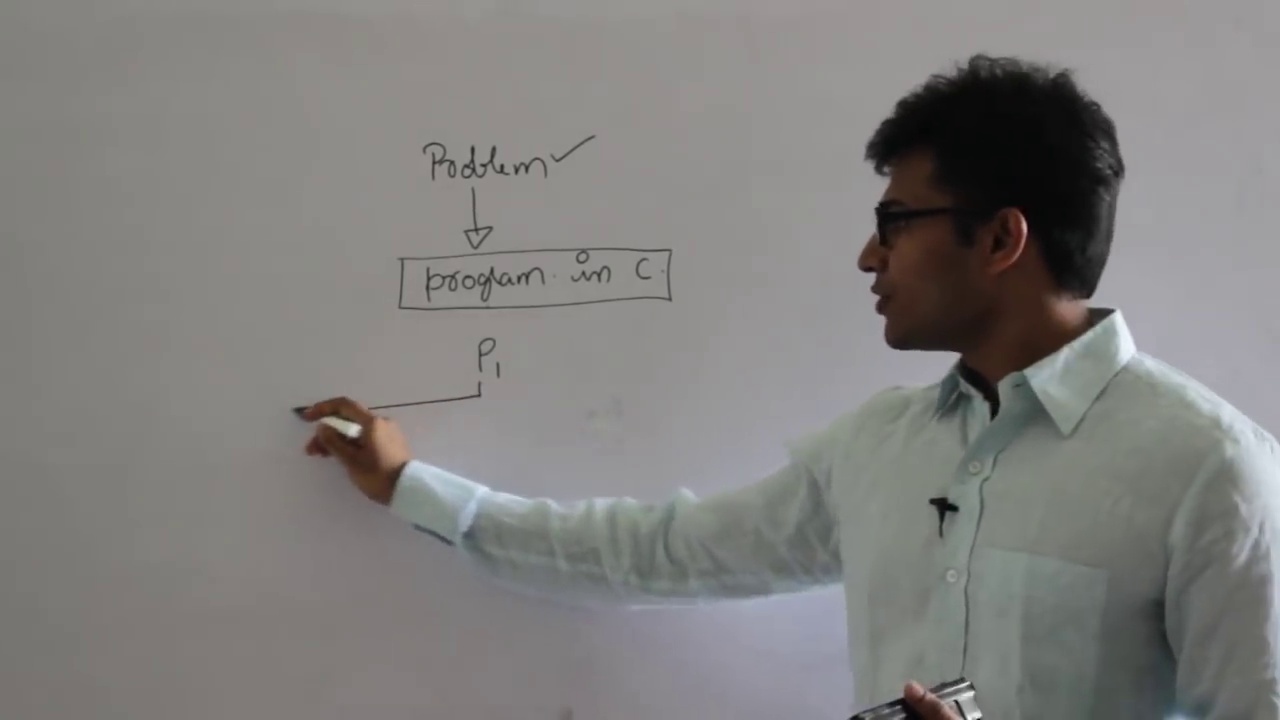 Problem ✓
program in C.
P1